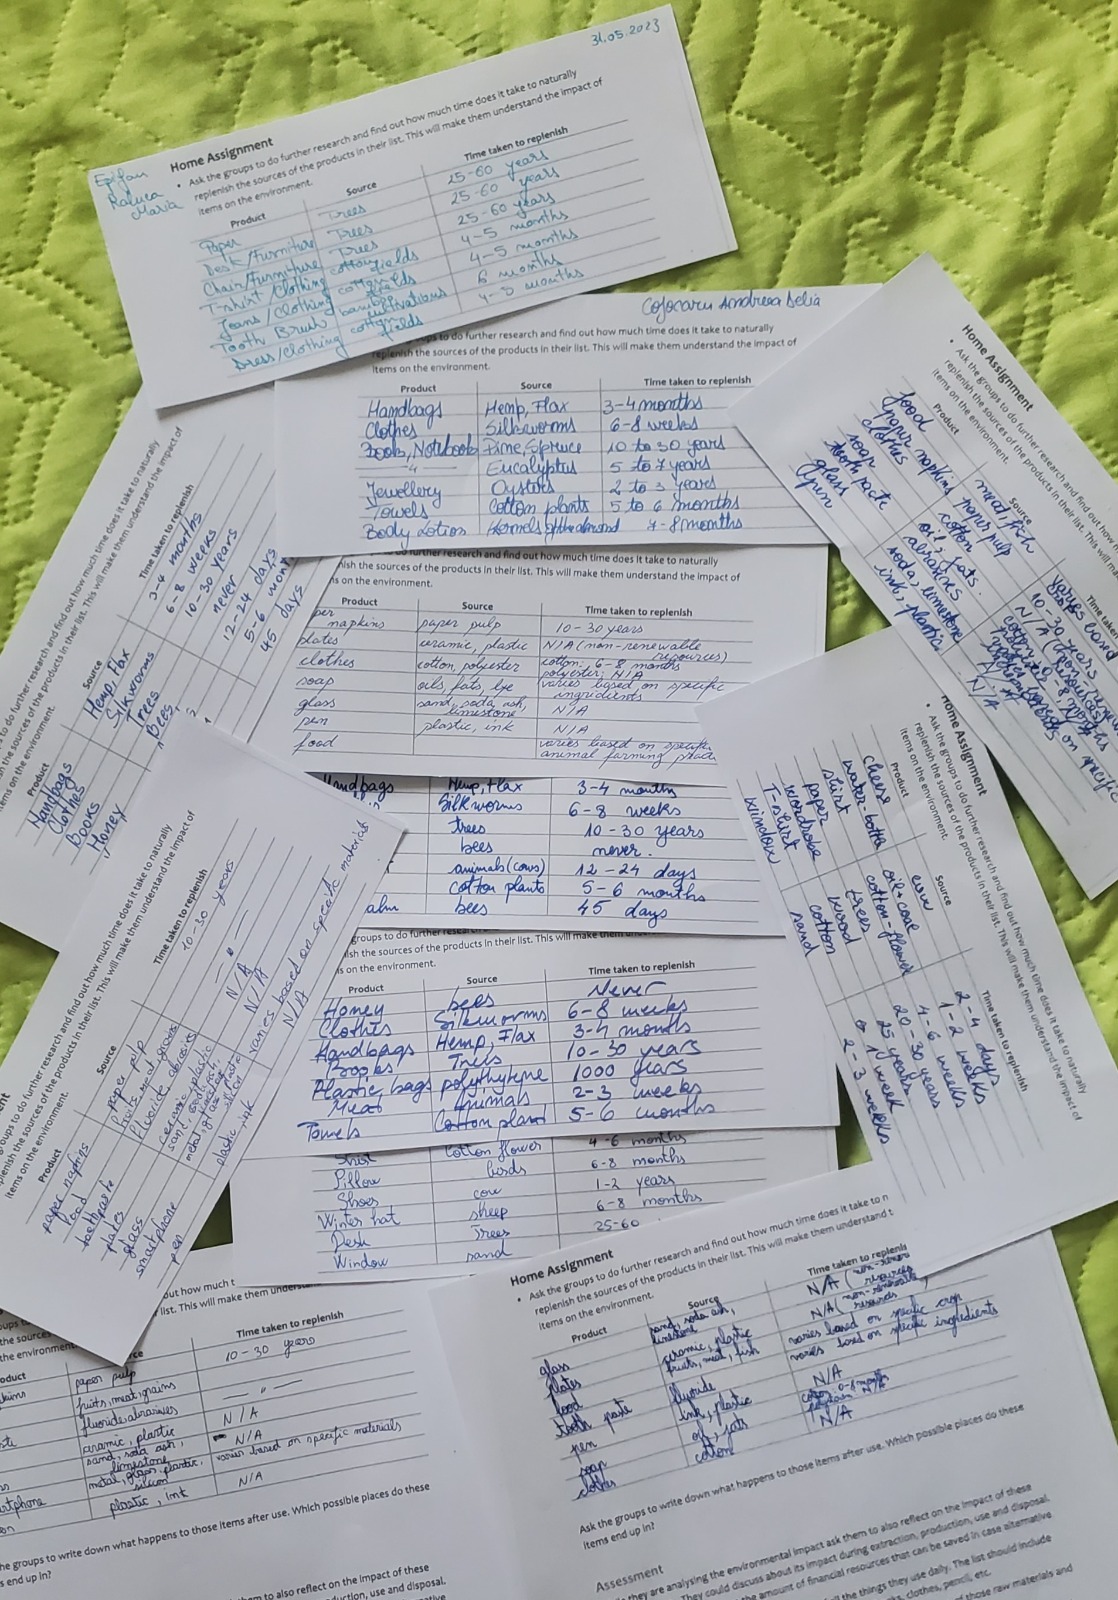 31.05.2023
Epifan
Raluca
Maria
Home Assignment
• Ask the groups to do further research and find out how much time does it take to naturally
replenish the sources of the products in their list. This will make them understand the impact of
items on the environment.
Product Source Time taken to replenish
Paper Trees 25-60 years
Desk/Furniture Trees 25-60 years
Chair/Furniture Trees 25-60 years
T-shirt/Clothing cotton fields 4-5 months
Jeans/Clothing cotton fields 4-5 months
Tooth Brush 6 months
Dress/Clothing cotton fields
Cojocaru Andreea Delia
to do further research and find out how much time does it take to naturally
replenish the sources of the products in their list. This will make them understand the impact of
items on the environment.
Product Source Time taken to replenish
Handbags Hemp, Flax 3-4 months
Clothes Silkworms 6-8 weeks
Book, Notebook Pine, Spruce 10 to 30 years
Eucalyptus 5 to 7 years
Jewellery Oysters 2 to 3 years
Towels Cotton plants 5 to 6 months
Body Lotion Kernels of the almond 7-8 months
further research and find out how much time does it take to naturally
nish the sources of the products in their list. This will make them understand the impact of
s on the environment.
Product Source Time taken to replenish
per napkins paper pulp 10-30 years
plates ceramic, plastic N/A (non-renewable resources)
clothes cotton, polyester cotton: 6-8 months
polyester: N/A
soap oils, fats, lye varies based on specific ingridients
glass sand, soda ash, limestone N/A
pen plastic, ink N/A
food varies based on specific
animal farming
Handbags Hemp, Flax 3-4 months
Silkworms 6-8 weeks
trees 10-30 years
bees never.
animals (cows) 12-24 days
cotton plants 5-6 months
alm bees 45 days
groups to do further
sh the sources of the products in their list. This will make them
s on the environment.
Product Source Time taken to replenish
Honey bees Never
Clothes Silkworms 6-8 weeks
Handbags Hemp, Flax 3-4 months
Books Trees 10-30 years
Plastic bags polythylene 1000 years
Meat Animals 2-3 weeks
Towels Cotton plant 5-6 months
Shirt Cotton flower 4-6 months
Pillow birds 6-8 months
Shoes cow 1-2 years
Winter hat sheep 6-8 months
Desk Trees 25-60
Window sand
Home Assignment
• Ask the groups to do
replenish the sources of the
items on the environment.
Product Source
food meat, fish
paper napkins paper pulp
clothes cotton
soap oil, fats
tooth paste abrasives
glass soda, limestone
pen ink, plastic
varies based
10-30 years
N/A
to do further research and find out how much time does it take to naturally
the sources of the products in their list. This will make them understand the impact of
items on the environment.
Product Source Time taken to replenish
Handbags Hemp, Flax 3-4 months
Clothes Silkworms 6-8 weeks
Books Trees 10-30 years
Honey Bees, never
12-24 days
5-6 mon
45 days
Home Assignment
• Ask the groups to do further research and find out how much time does it take to naturally
replenish the sources of the products in their list. This will make them understand the impact of
items on the environment.
Product Source Time taken to replenish
cheese cow 2-4 days
water-bottle oil+coal 1-2 weeks
shirt cotton-flower 4-6 weeks
paper trees 20-30 years
wordrobe wood 25 years
T-shirt cotton 1 week
window sand 2-3 weeks
groups to do further research and find out how much time does it take to naturally
plenish the sources of the products in their list. This will make them understand the impact of
items on the environment.
Product Source Time taken to replenish
paper napkins paper pulp 10-30 years
food fruits, meat, grains — " —
toothpaste fluoride, abrasives N/A
plates ceramic, plastic N/A
glass varies based on specific materials
smartphone N/A
pen plastic, ink
out how much t
list. This will make them understand
the source
the environment
oduct Time taken to replenish
kins paper pulp 10-30 years
fruits, meat, grains — " —
fluoride, abrasives N/A
ceramic, plastic N/A
sand, soda ash, limestone varies based on specific materials
artphone metal, glass, plastic, silicon N/A
plastic, ink
he groups to write down what happens to those items after use. Which possible places do these
s end up in?
m to also reflect on the impact of these
duction, use and disposal.
Home Assignment
• Ask the groups to do further research and find out how much time does it take to n
replenish the sources of the products in their list. This will make them understand t
items on the environment.
Product Source Time taken to replenis
glass sand, soda ash, limestone N/A (non-renew resources)
plates ceramic, plastic N/A (non-renewable resources)
food fruits, meat, fish varies based on specific crop
tooth paste fluoride varies based on specific ingredients
pen ink, plastic N/A
soap oil, fats
clothes cotton N/A
Ask the groups to write down what happens to those items after use. Which possible places do these
items end up in?
Assessment
they are analysing the environmental impact ask them to also reflect on the impact of these
They could discuss about its impact during extraction, production, use and disposal.
the amount of financial resources that can be saved in case alternative
the things they use daily. The list should include
clothes, pencil, etc.
those raw materials and